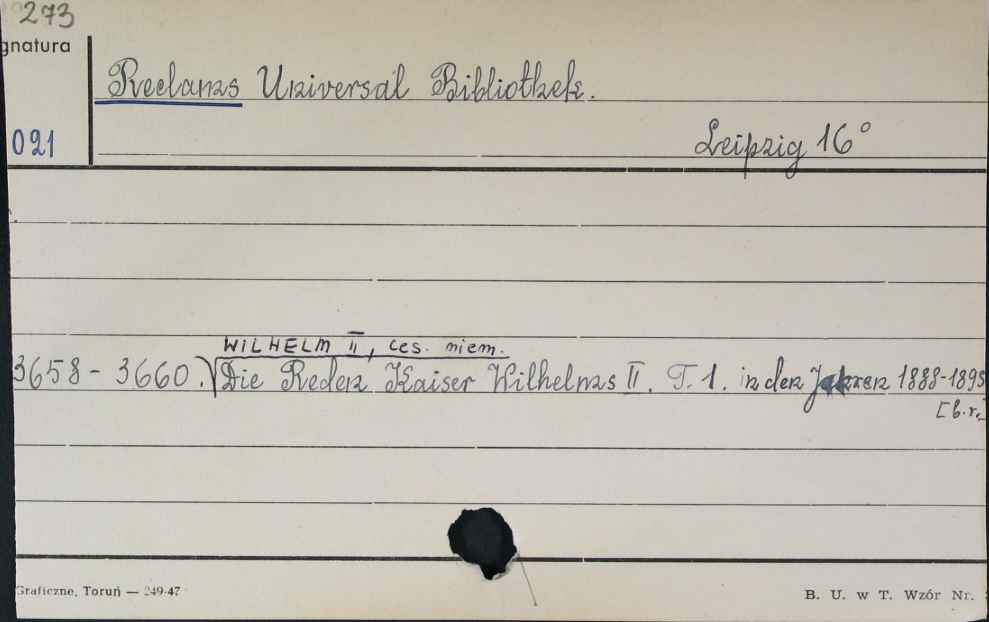 273
gnatura
Reclams Universal Bibliothek.
021
Leipzig 16°
WILHELM II, ces. niem.
3658 - 3660. Die Reden Kaiser Wilhelms II. T. 1. in den Jahren 1888-1895
[b.r.
Graficzne, Toruń — 249-47
B. U. w T. Wzór Nr.